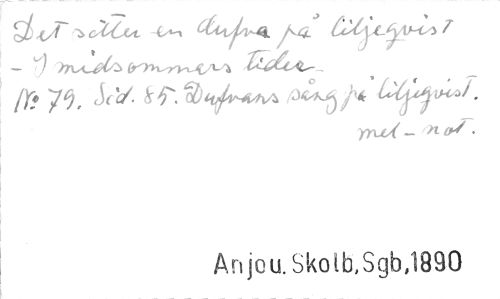 Det sitter en dufva på liljeqvist
- I midsommars tider
No 79. Sid. 85. Dufvans sång på liljeqvist.
mel - not.
Anjou. Skolb, Sgb, 1890